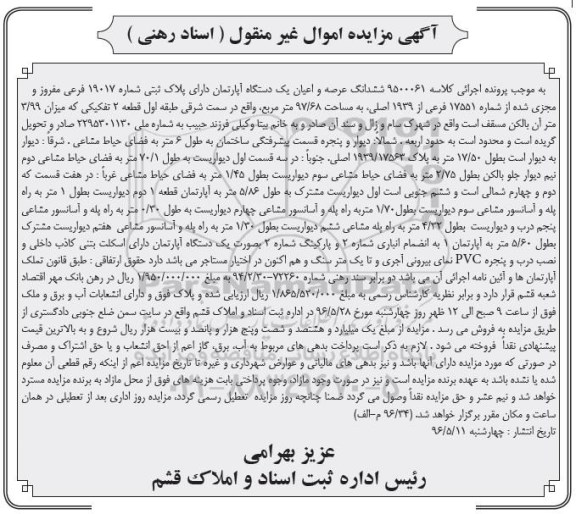 آگهی مزایده اموال غیر منقول ( اسناد رهنی )
به موجب پرونده اجرائی کلاسه ۹۵۰۰۰۶۱ ششدانگ عرصه و اعیان یک دستگاه آپارتمان دارای پلاک ثبتی شماره ۱۹۰۱۷ فرعی مفروز و
مجزی شده از شماره ۱۷۵۵۱ فرعی از ۱۹۳۹ اصلی، به مساحت ۹۷/۶۸ متر مربع، واقع در سمت شرقی طبقه اول قطعه ۲ تفکیکی که میزان ۳/۹۹
متر آن بالکن مسقف است واقع در شهرک سام و زال و سند آن صادر و به خانم بیتا وکیلی فرزند حبیب به شماره ملی ۲۲۹۵۳۰۱۱۳۰ صادر و تحویل
گریده است و محدود است به حدود اربعه، شمالا: دیوار و پنجره قسمت پیشرفتگی ساختمان به طول ۶ متر به فضای حیاط مشاعی ، شرقا : دیوار
به دیوار است بطول ۱۷/۵۰ متر به پلاک ۱۹۳۹/۱۷۵۶۳ اصلی، جنوباً : در سه قسمت اول دیواریست به طول ۷۰/۱ متر به فضای حیاط مشاعی دوم
نیم دیوار جلو بالکن بطول ۲/۷۵ متر به فضای حیاط مشاعی سوم دیواریست بطول ۱/۴۵ متر به فضای حیاط مشاعی غرباً : در هفت قسمت که
دوم و چهارم شمالی است و ششم جنوبی است اول دیواریست مشترک به طول ۵/۸۶ متر به آپارتمان قطعه ۱ دوم دیواریست بطول ۱ متر به راه
پله و آسانسور مشاعی سوم دیواریست بطول ۱/۷۰ متربه راه پله و آسانسور مشاعی چهارم دیواریست به طول ۰/۳۰ متر به راه پله و آسانسور مشاعی
پنجم درب و دیواریست بطول ۴/۲۳ متر به راه پله مشاعی ششم دیواریست بطول ۱/۳۰ متر به راه پله و آسانسور مشاعی هفتم دیواریست مشترک
بطول ۵/۶۰ متر به آپارتمان ۱ به انضمام انباری شماره ۲ و پارکینگ شماره ۲ بصورت یک دستگاه آپارتمان دارای اسکلت بتنی کاذب داخلی و
نصب درب و پنجره PVC نمای بیرونی آجری و تا یک متر سنگ و هم اکنون در اختیار مستاجر می باشد دارد حقوق ارتفاقی : طبق قانون تملک
آپارتمان ها و آئین نامه اجرائی آن می باشد دو برابر سند رهنی شماره ۷۲۲۶۰-۹۴/۲/۳۰ به مبلغ ۱/۹۵۰/۰۰۰/۰۰۰ ریال در رهن بانک مهر اقتصاد
شعبه قشم قرار دارد و برابر نظریه کارشناس رسمی به مبلغ ۱/۸۶۵/۵۲۰/۰۰۰ ریال ارزیابی شده و پلاک فوق و دارای انشعابات آب و برق و ملک
فوق از ساعت ۹ صبح الی ۱۲ ظهر روز چهارشنبه مورخ ۹۶/۵/۲۸ در اداره ثبت اسناد و املاک قشم واقع در سایت سمن ضلع جنوبی دادگستری از
طریق مزایده به فروش می رسد . مزایده از مبلغ یک میلیارد و هشتصد و شصت وپنج هزار و پانصد و بیست هزار ریال شروع و به بالاترین قیمت
پیشنهادی نقداً فروخته می شود . لازم به ذکر است پرداخت بدهی های مربوط به آب، برق، گاز اعم از حق انشعاب و یا حق اشتراک و مصرف
در صورتی که مورد مزایده دارای آنها باشد و نیز بدهی های مالیاتی و عوارض شهرداری و غیره تا تاریخ مزایده اعم از اینکه رقم قطعی آن معلوم
شده یا نشده باشد به عهده برنده مزایده است و نیز در صورت وجود مازاد، وجوه پرداختی بابت هزینه های فوق از محل مازاد به برنده مزایده مسترد
خواهد شد و نیم عشر و حق مزایده نقداً وصول می گردد ضمنا چنانچه روز مزایده تعطیل رسمی گردد، مزایده روز اداری بعد از تعطیلی در همان
ساعت و مکان مقرر برگزار خواهد شد. (۹۶/۳۴ م-الف)
تاریخ انتشار : چهارشنبه ۹۶/۵/۱۱
عزیز بهرامی
رئیس اداره ثبت اسناد و املاک قشم